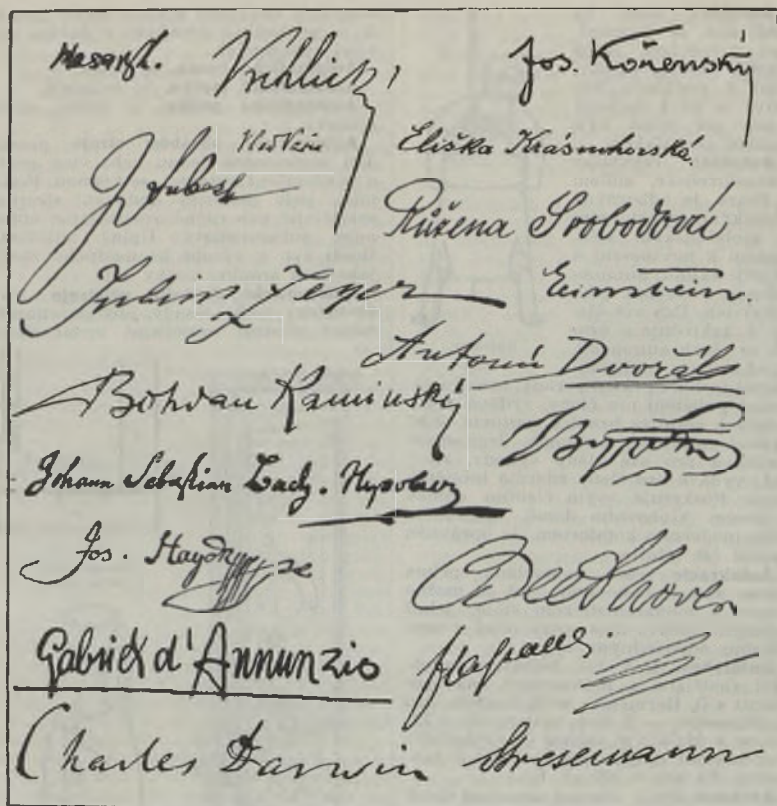 Masaryk.
Vrchlický
Jos. Kořenský
Eliška Krásnohorská.
Růžena Svobodová
Julius Zeyer
Einstein.
Antonín Dvořák
Bohdan Kaminský
Johann Sebastian Bach.
Jos. Haydn
Beethoven
Gabriel d'Annunzio
Charles Darwin
Stresemann